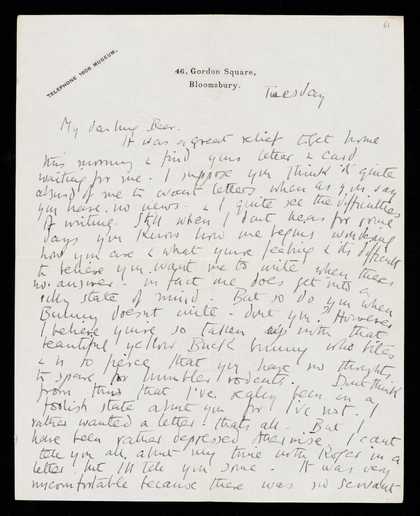 61
TELEPHONE 1608 MUSEUM.
46, Gordon Square,
Bloomsbury.
Tuesday
My darling Bear.
It was a great relief to get home
this morning & find your letter & card
waiting for me. I suppose you think it quite
absurd of me to want letters when as you say
you have no news - & I quite see the difficulties
of writing. Still when I dont hear for some
days you know how one begins wondering
how you are & what youre feeling & its difficult
to believe you want me to write when theres
no answer. In fact one does get into a
silly state of mind. But so do you when
Bunny doesnt write - dont you? However
I believe youre so taken up with that
beautiful yellow Buck bunny who bites
& is so fierce that you have no thoughts
to spare for humbler rodents. Dont think
from this that I've really been in a
foolish state about you for I've not. I
rather wanted a letter thats all. But I
have been rather depressed otherwise. I cant
tell you all about my time with Roger in a
letter but Ill tell you some. It was very
uncomfortable because there was no servant